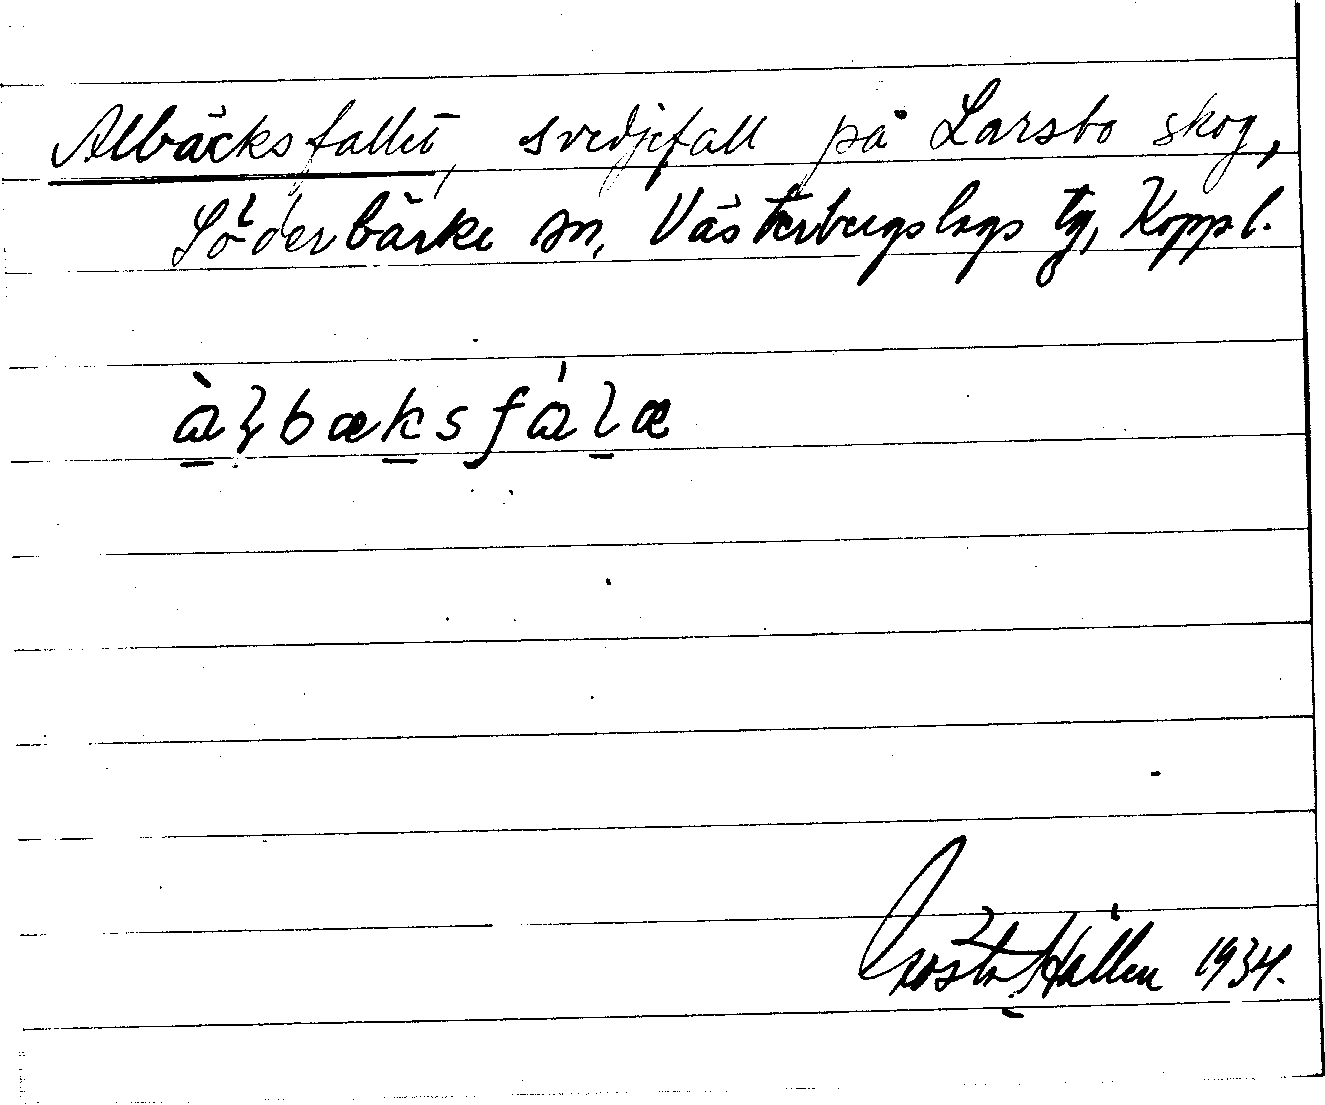 Albäcksfallet, svedjefall på Larsbo skog,
Söderbärke sn, Västerbergslags tg, Kopp. l.
àlbæksfálæ
Gösta Hallén 1934.